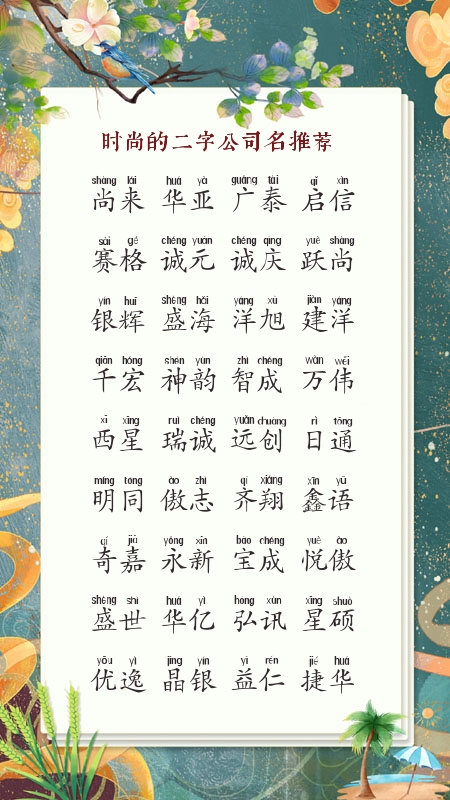 时尚的二字公司名推荐
shàng lái huá yà guǎng tài qǐ xìn
尚来 华亚 广泰 启信
sài gé chéng yuán chéng qìng yuè shàng
赛格 诚元 诚庆 跃尚
yín huī shèng hǎi yáng xù jiàn yáng
银辉 盛海 洋旭 建洋
qiān hóng shén yùn zhì chéng wàn wěi
千宏 神韵 智成 万伟
xī xīng ruì chéng yuǎn chuàng rì tōng
西星 瑞诚 远创 日通
míng tóng ào zhì qí xiáng xīn yǔ
明同 傲志 齐翔 鑫语
qí jiā yǒng xīn bǎo chéng yuè ào
奇嘉 永新 宝成 悦傲
shèng shì huá yì hóng xùn xīng shuò
盛世 华亿 弘讯 星硕
yōu yì jīng yín yì rén jié huá
优逸 晶银 益仁 捷华